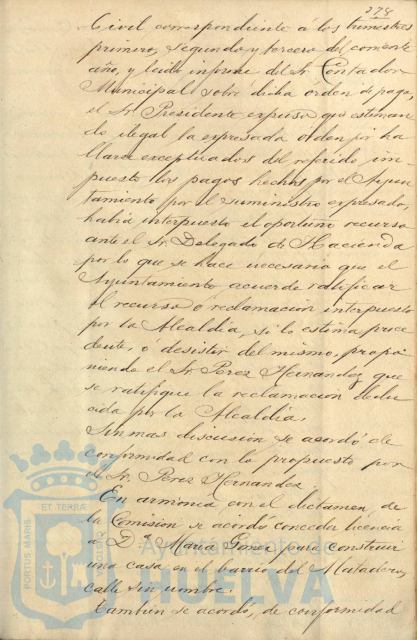 278
Civil correspondiente á los trimestres
primero, segundo y tercero del corriente
año, y leido informe del Sr. Contador
Municipal sobre dicha órden de pago,
el Sr. Presidente expuso que estiman
do ilegal la expresada órden por ha
llarse exceptuados del referido im
puesto los pagos hechos por el Ayun
tamiento por el suministro expresado,
habia interpuesto el oportuno recurso
ante el Sr. Delegado de Hacienda
por lo que se hace necesario que el
Ayuntamiento acuerde ratificar
el recurso ó reclamacion interpuesto
por la Alcaldia, si lo estima proce
dente, ó desistir del mismo, propo
niendo el Sr. Perez Hernandez que
se ratifique la reclamacion dedu
cida por la Alcaldia.
Sin mas discusion se acordó de
conformidad con lo propuesto por
el Sr. Perez Hernandez.
En armonia con el dictamen de
la Comision se acordó conceder licencia
á Dª Maria Gomez para construir
una casa en el barrio del Matadero,
calle sin nombre.
Tambien se acordó, de conformidad
ET TERRÆ
PORTUS MARIS
CUSTODIA
Ayuntamiento de
HUELVA